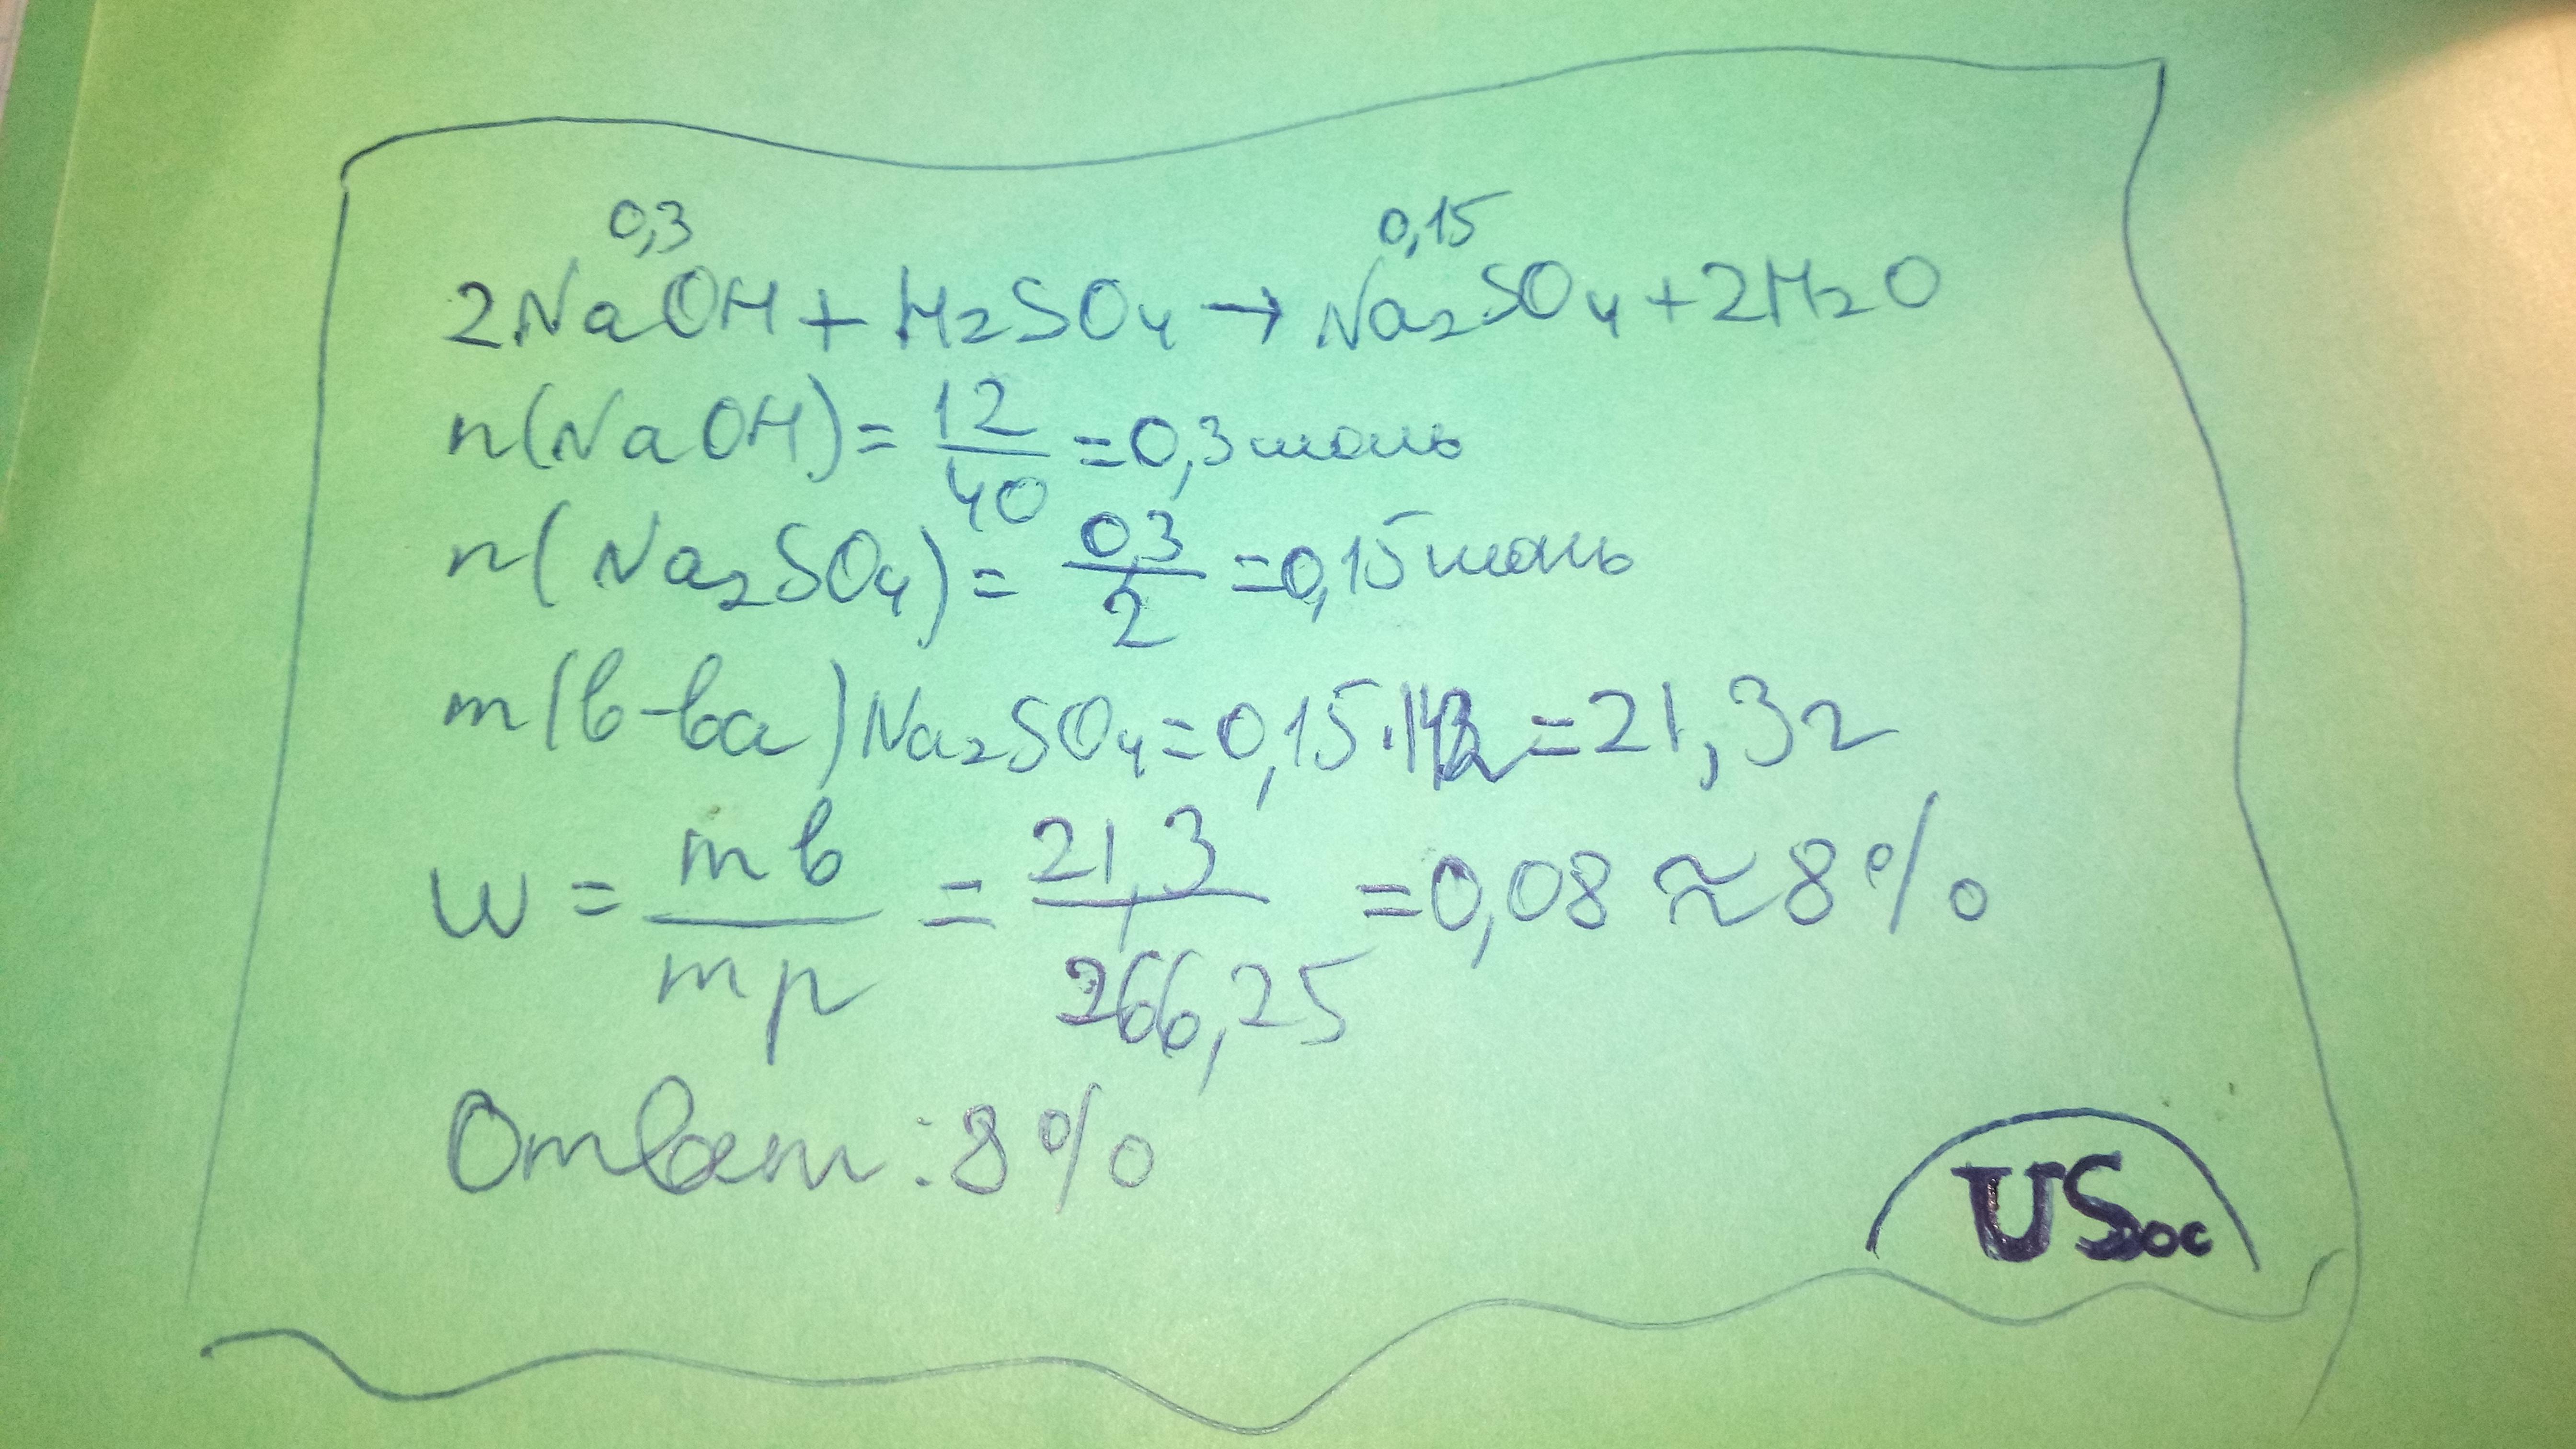 0,3 0,15
2NaOH + H2SO4 → Na2SO4 + 2H2O
n(NaOH) = 12/40 = 0,3 моль
n(Na2SO4) = 0,3/2 = 0,15 моль
m(в-ва) Na2SO4 = 0,15·142 = 21,3 г
w = mв/mр = 21,3/266,25 = 0,08 ≈ 8%
Ответ: 8%
USoc